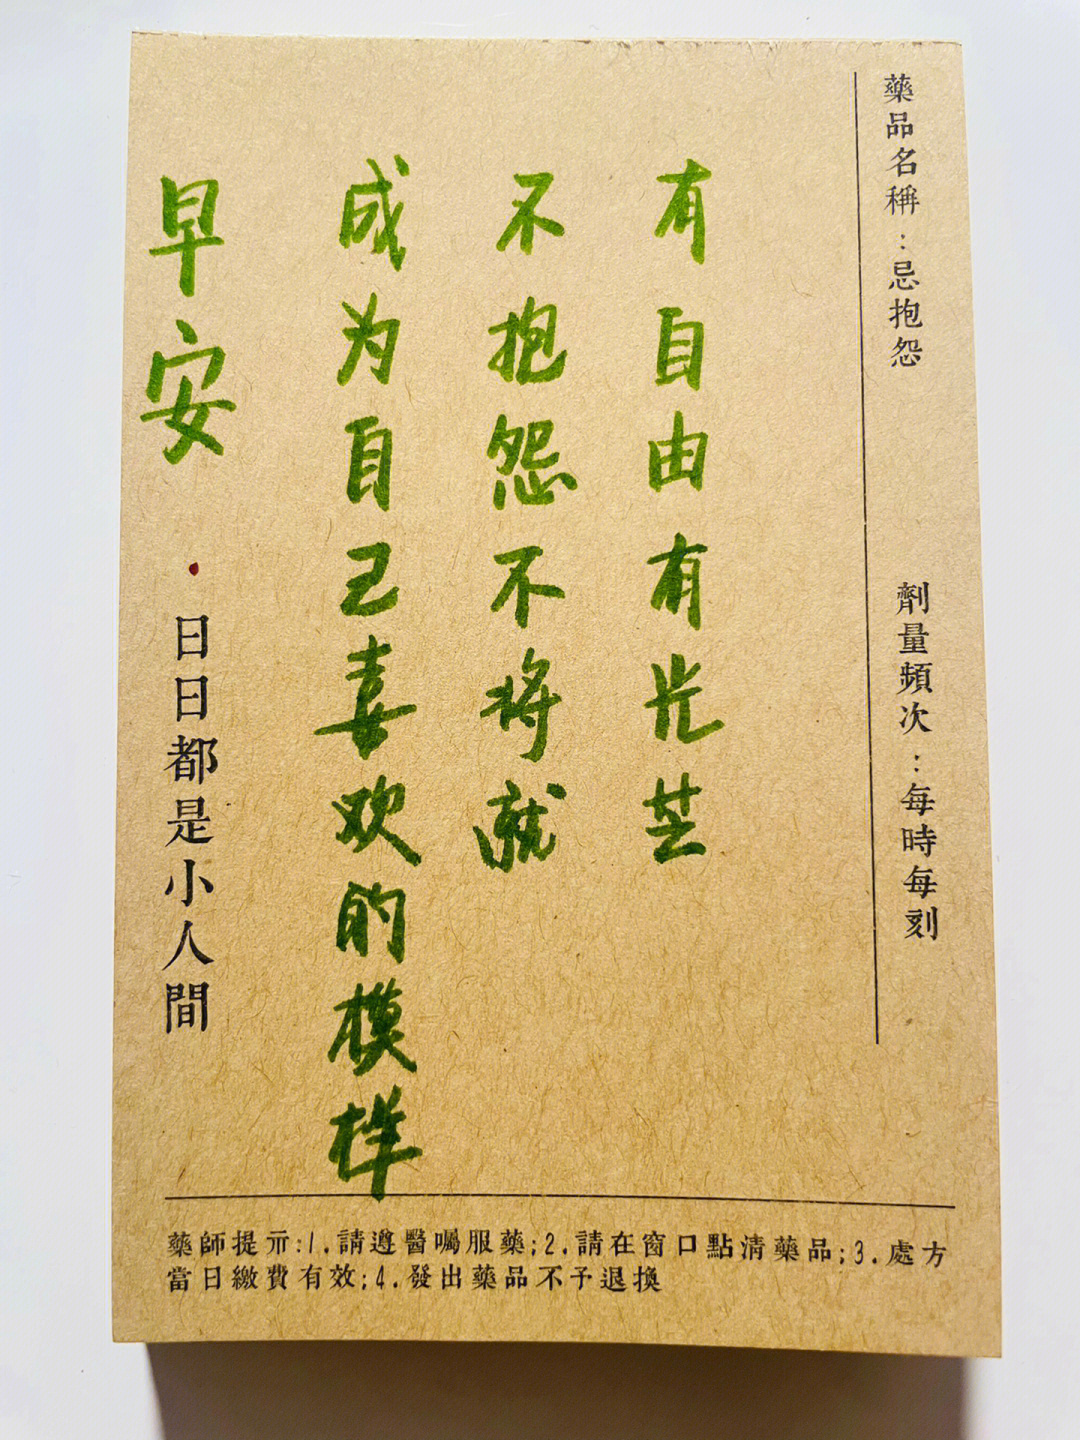 藥品名稱：忌抱怨
劑量頻次：每時每刻
有自由有光芒
不抱怨不将就
成为自己喜欢的模样
早安
·日日都是小人間
藥師提示:1.請遵醫囑服藥;2.請在窗口點清藥品;3.處方
當日繳費有效;4.發出藥品不予退換